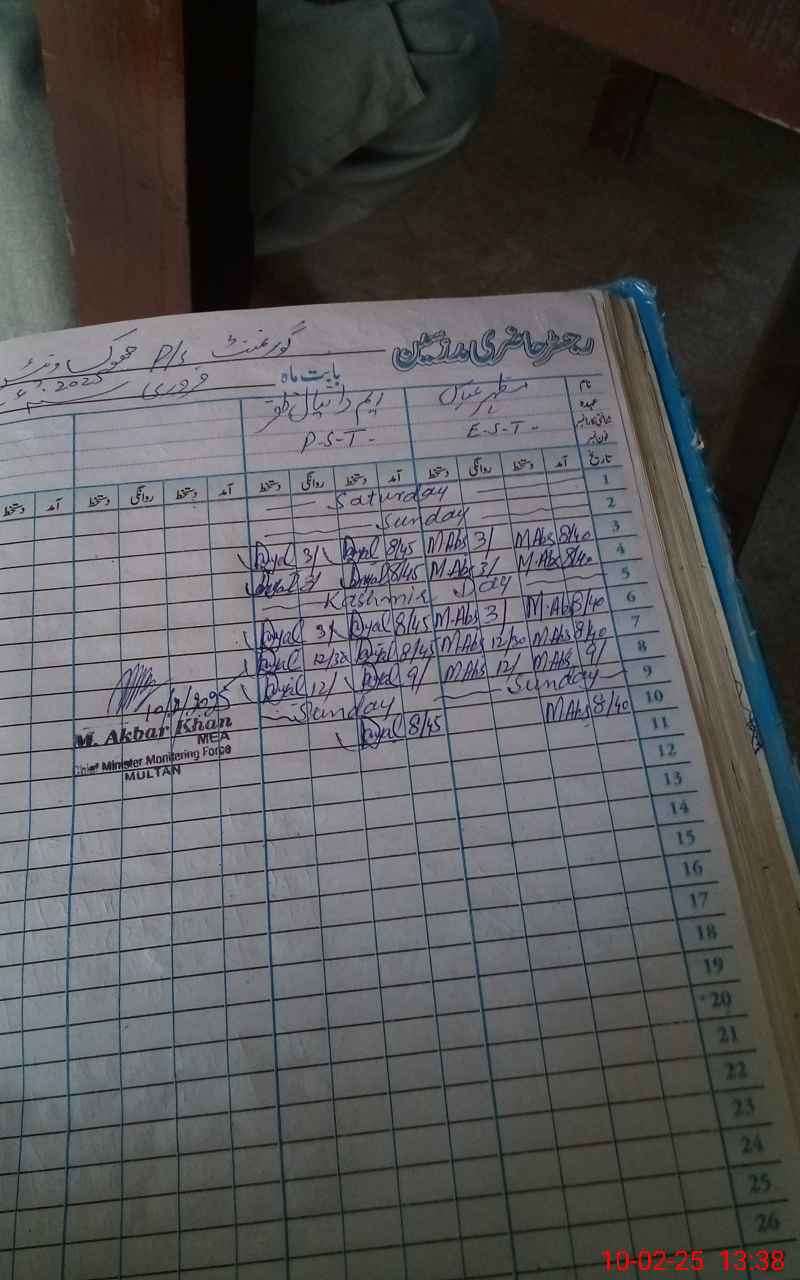 رجسٹر حاضری مدرسین
گورنمنٹ P/S جھوک
بابت ماہ فروری 2025
نام
عہدہ
فون نمبر
مظہر عباس
E-S-T-
ایم دانیال ظفر
P-S-T-
تاریخ آمد دستخط روانگی دستخط آمد دستخط روانگی دستخط آمد دستخط روانگی دستخط آمد دستخط
1 Saturday
2 Sunday
3 8/40 M Abs 3/ M Abs 8/45 Dyal 3/ Dyal
4 8/40 M.Abs 3/ M.Abs 8/45 Dyal 3/ Dyal
5 Kashmir Day
6 8/40 M.Abs 3/ M.Abs 8/45 Dyal 3/ Dyal
7 8/40 M Abs 12/30 M Abs 8/45 Dyal 12/30 Dyal
8 9/ M Abs 12/ M Abs 9/ Dyal 12/ Dyal
9 Sunday Sunday
10 8/40 M Abs 8/45 Dyal
11
12
13
14
15
16
17
18
19
20
21
22
23
24
25
26
10/2/2025
M. Akbar Khan
MEA
Chief Minister Monitering Force
MULTAN
10-02-25 13:38